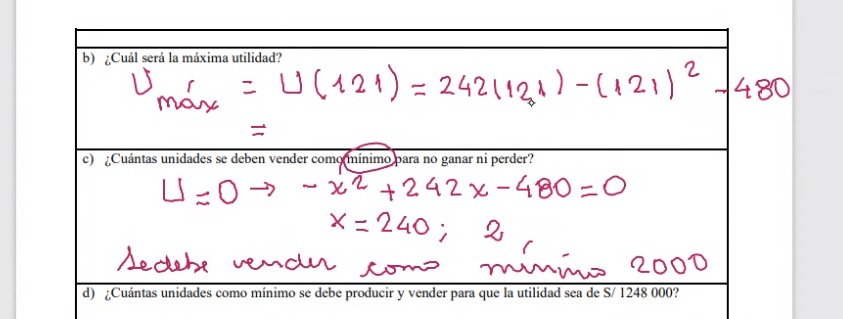 b) ¿Cuál será la máxima utilidad?
U máx = U(121) = 242(121) - (121)² - 480
=
c) ¿Cuántas unidades se deben vender como mínimo para no ganar ni perder?
U = 0 → - x² + 242x - 480 = 0
x = 240 ; 2
Se debe vender como mínimo 2000
d) ¿Cuántas unidades como mínimo se debe producir y vender para que la utilidad sea de S/ 1248 000?